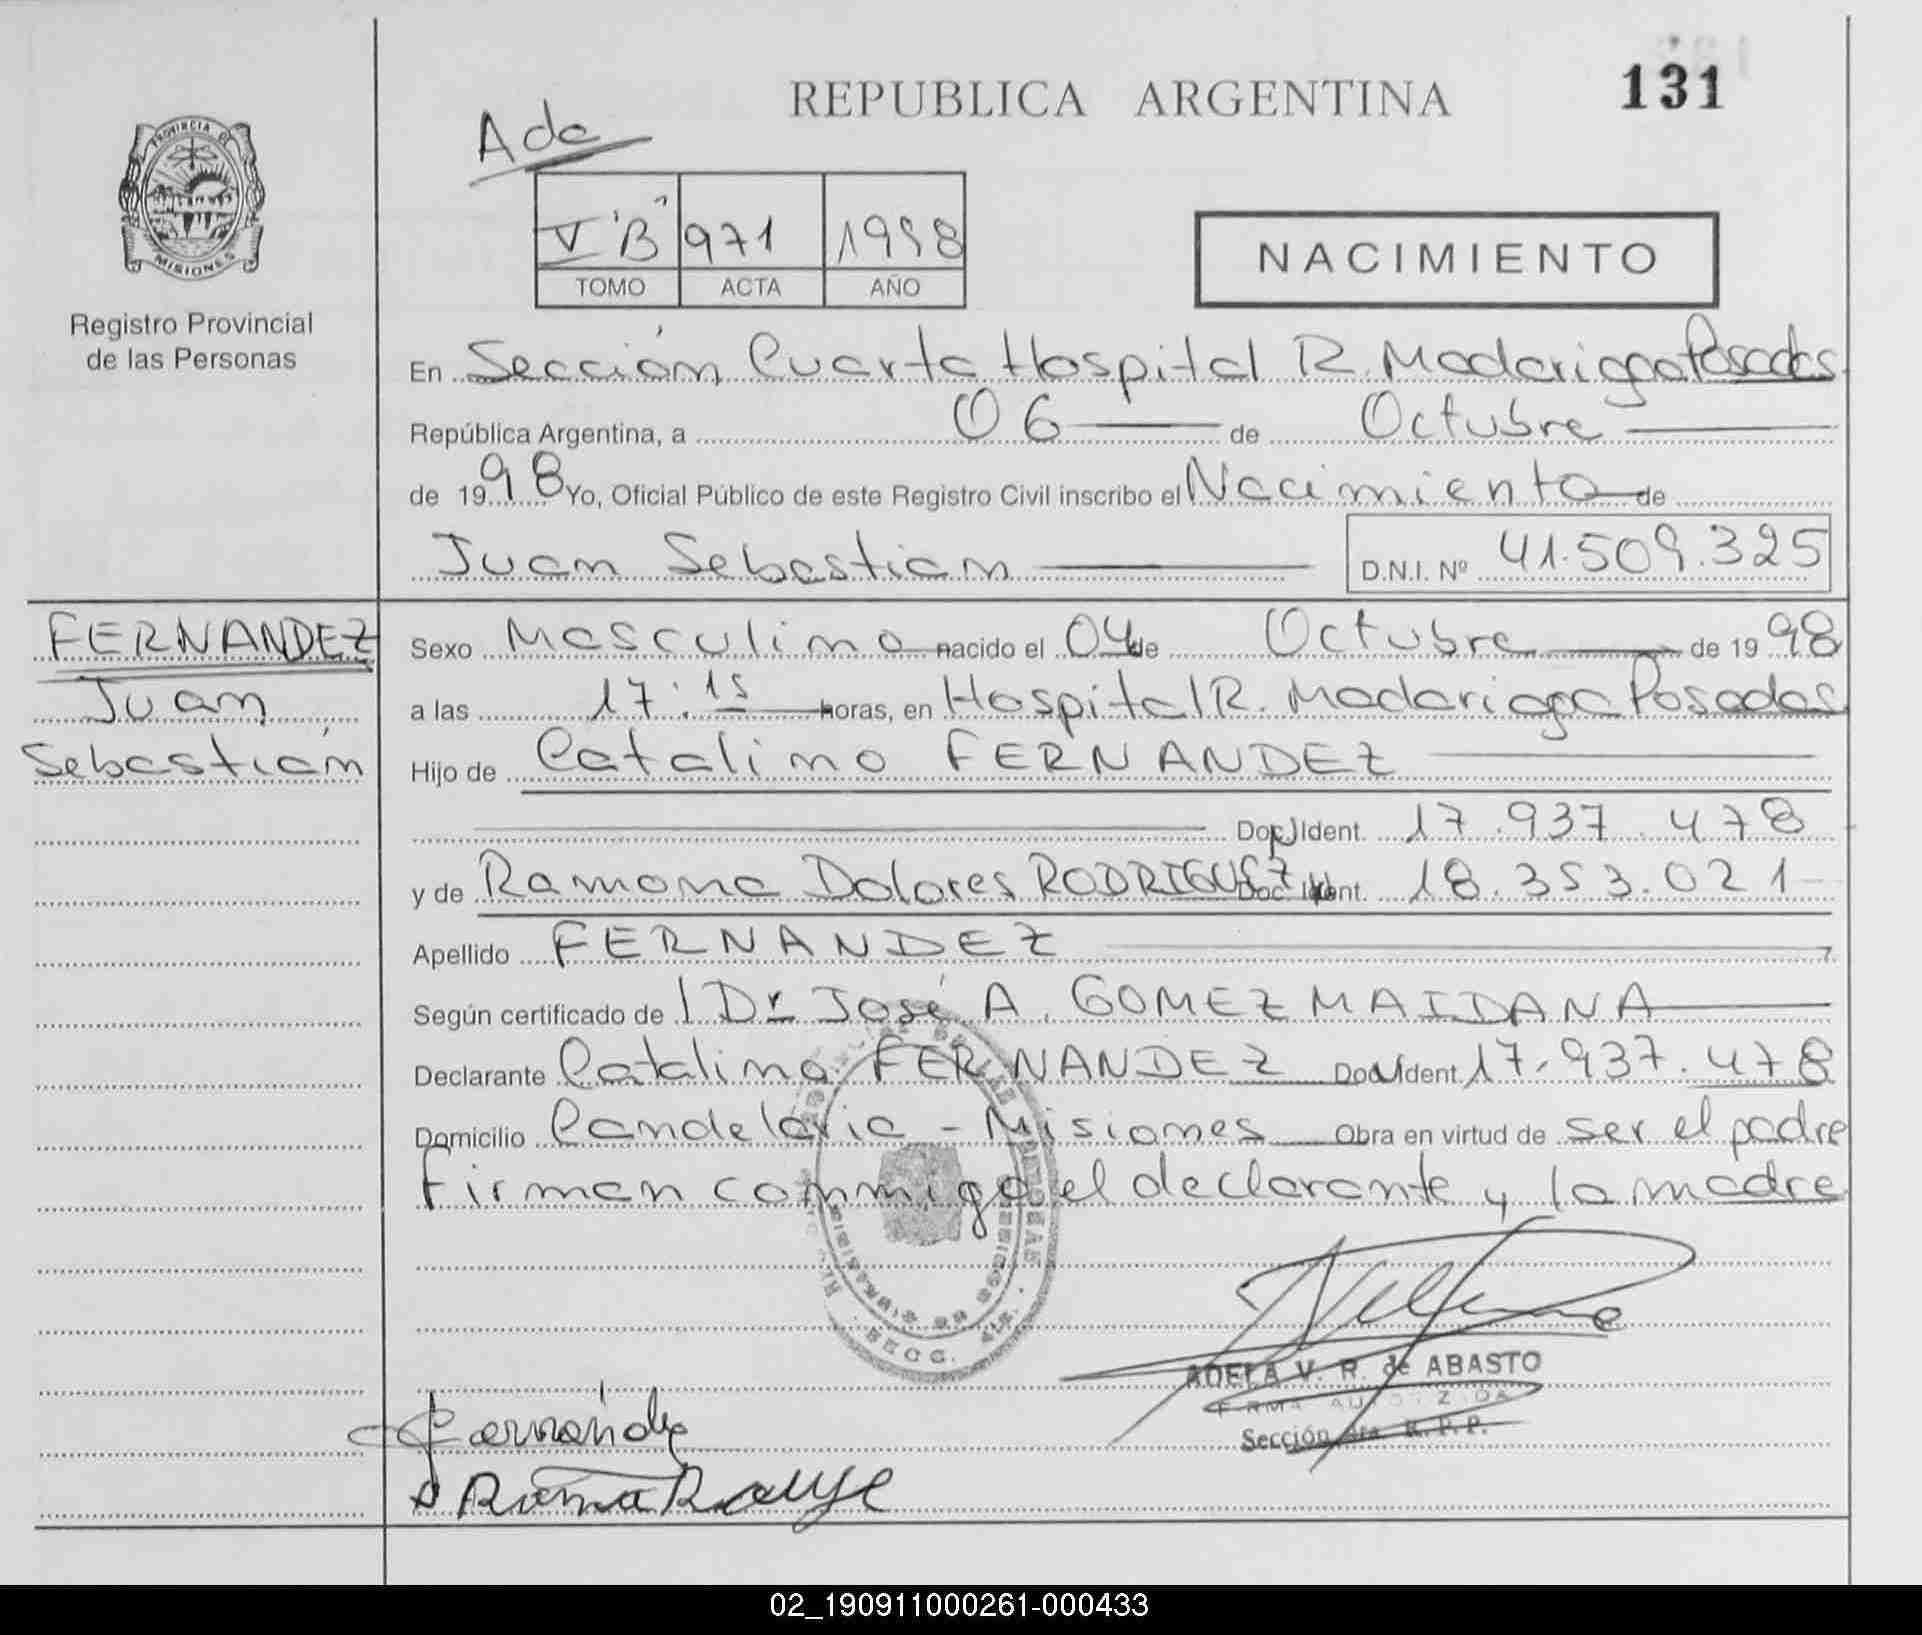 131
REPUBLICA ARGENTINA
Ade
PROVINCIA DE
MISIONES
Registro Provincial
de las Personas
V "B" 971 1998
TOMO ACTA AÑO
NACIMIENTO
En Sección Cuarta Hospital R. Madariaga Posadas
República Argentina, a 06 de Octubre
de 1998 Yo, Oficial Público de este Registro Civil inscribo el Nacimiento de
Juan Sebastian D.N.I. Nº 41.509.325
FERNANDEZ
Juan
Sebastián
Sexo Masculino nacido el 04 de Octubre de 1998
a las 17:15 horas, en Hospital R. Madariaga Posadas
Hijo de Catalino FERNANDEZ
Doc. Ident. 17.937.478
y de Ramona Dolores RODRIGUEZ Doc. Ident. 18.353.021
Apellido FERNANDEZ
Según certificado de l Dr José A. GOMEZ MAIDANA
Declarante Catalino FERNANDEZ Doc. Ident. 17.937.478
Domicilio Candelaria - Misiones Obra en virtud de ser el padre
Firman conmigo el declarante y la madre
SECC. 4ta.
ADELA V. R. de ABASTO
FIRMA AUTORIZADA
Sección 4ta. R. P. P.
Fernández
02_190911000261-000433